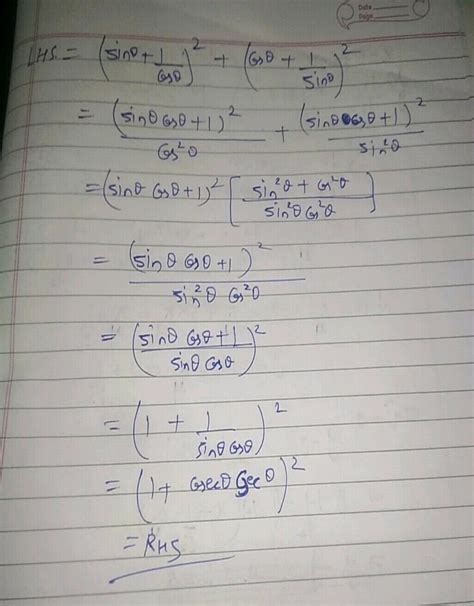 Date
Page
LHS = (sinθ + 1/cosθ)² + (cosθ + 1/sinθ)²
= (sinθ cosθ + 1)²/cos²θ + (sinθ cosθ + 1)²/sin²θ
= (sinθ cosθ + 1)² [sin²θ + cos²θ / sin²θ cos²θ]
= (sinθ cosθ + 1)² / sin²θ cos²θ
= (sinθ cosθ + 1 / sinθ cosθ)²
= (1 + 1/sinθ cosθ)²
= (1 + cosecθ secθ)²
= RHS